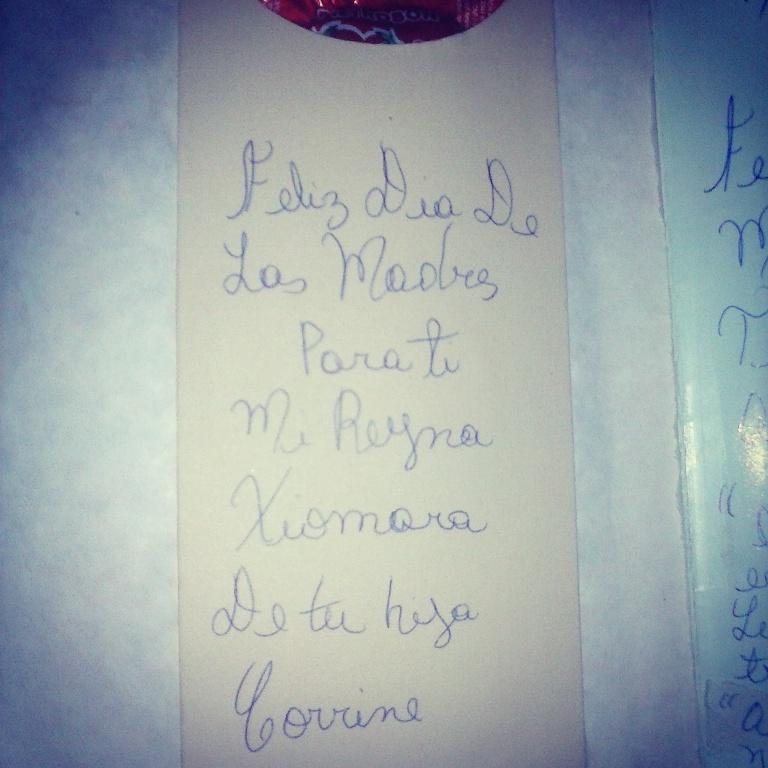 Feliz Dia De
Las Madres
Para ti
Mi Reyna
Xiomara
De tu hija
Corrine